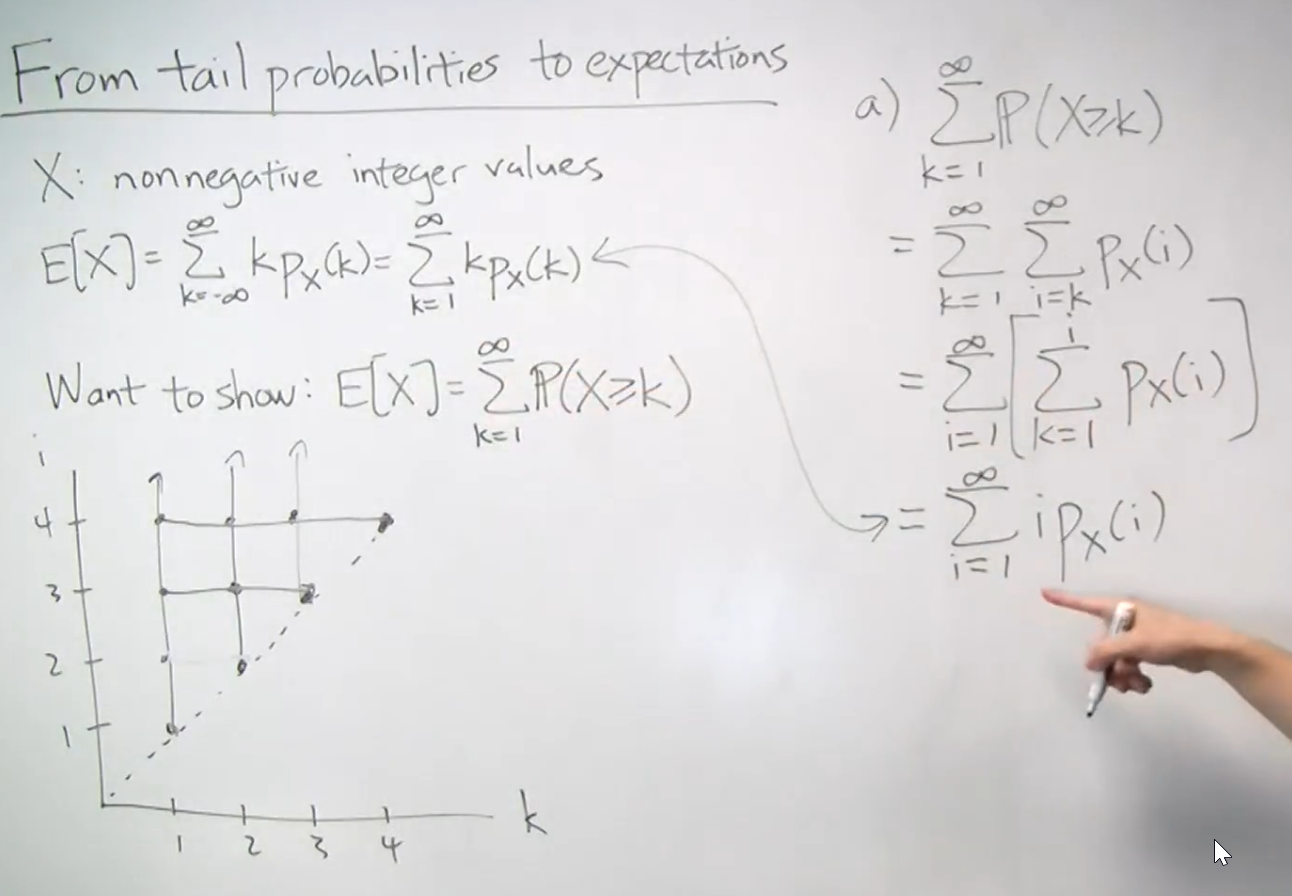 From tail probabilities to expectations
X: nonnegative integer values
E[X] = ∑_{k=-∞}^{∞} k p_X(k) = ∑_{k=1}^{∞} k p_X(k)
Want to show: E[X] = ∑_{k=1}^{∞} P(X≥k)
i
4
3
2
1
1 2 3 4
k
a) ∑_{k=1}^{∞} P(X≥k)
= ∑_{k=1}^{∞} ∑_{i=k}^{∞} p_X(i)
= ∑_{i=1}^{∞} [∑_{k=1}^{i} p_X(i)]
= ∑_{i=1}^{∞} i p_X(i)